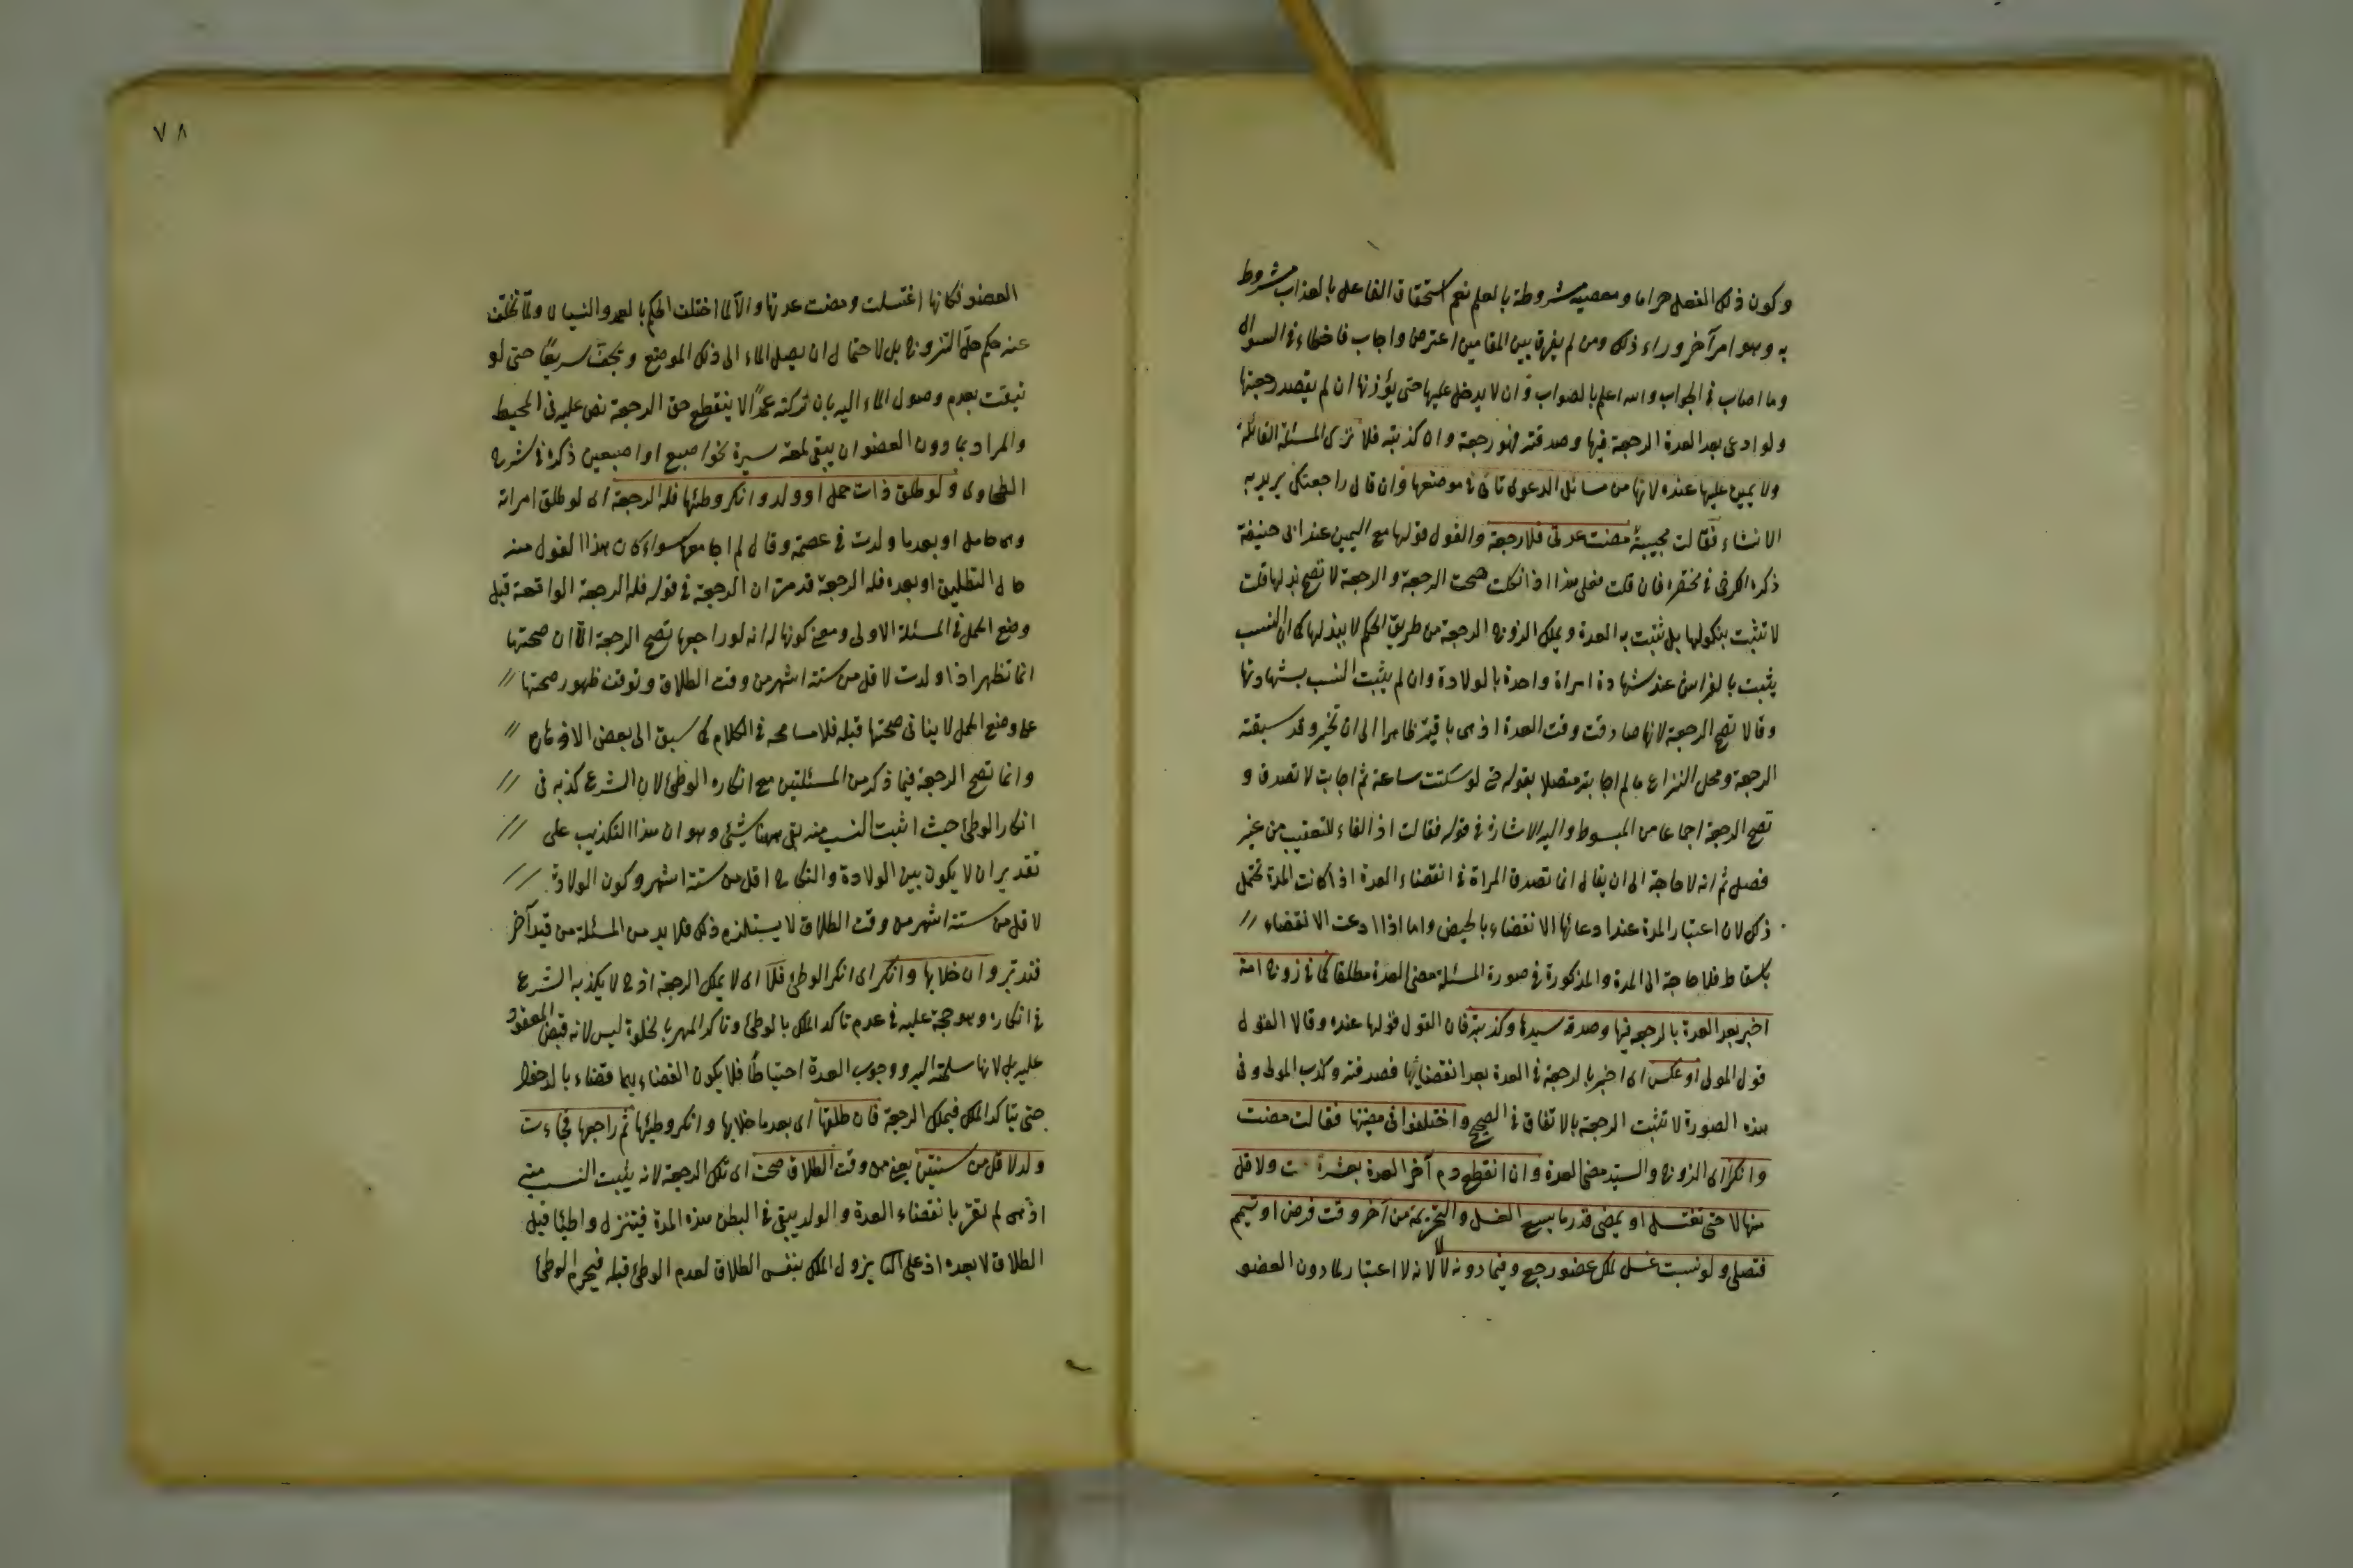 وكون ذلك الفعل حراما ومعصية مشروطة بالعلم نعم استحقاق الفاعل بالعذاب مشروط
به وهو امر آخر وراء ذلك ومن لم يفرق بين المقامين اعترض واجاب فاخطاء في السوال
وما اصاب في الجواب والله اعلم بالصواب وان لا يدخل عليها حتى يؤذنها ان لم يقصد رجعتها
ولو ادعى بعد العدة الرجعة فيها وصدقته فهو رجعة وان كذبته فلا المسئلة
ولا يمين عليها عنده لانها من مسائل الدعوى تاتى في موضعها وان قال راجعتك يريد به
الانشاء فقالت مجيبة مضت عدتى فلا رجعة والقول قولها مع اليمين عند ابى حنيفة
ذكره الكرخى في مختصره فان قلت فعلى هذا اذا نكلت صحت الرجعة والرجعة لا تصح بذلها قلت
لا تثبت بنكولها بل تثبت به العدة ويملك الزوج الرجعة من طريق الحكم لا ببذلها كما ان النسب
يثبت بالفراش عند شهادة امراة واحدة بالولادة وان لم يثبت النسب بشهادتها
وقالا تصح الرجعة لانها صادفت وقت العدة اذ هى باقية ظاهرا الى ان تخبر وقد سبقته
الرجعة ومحل النزاع ما لم اجابته متصلا بقوله حتى لو سكتت ساعة ثم اجابت لا تصدق و
تصح الرجعة اجماعا من المبسوط واليه الاشارة في قوله فقالت اذ الفاء للتعقيب من غير
فصل ثم انه لا حاجة الى ان يقال انما تصدق المراة في انقضاء العدة اذا كانت المدة تحتمل
ذلك لان اعتبار المدة عند ادعائها الانقضاء بالحيض واما اذا ادعت الانقضاء //
باسقاط فلا حاجة الى المدة والمذكورة في صورة المسئلة مضى العدة مطلقا كما في زوج امة
اخبر بعد العدة بالرجعة فيها وصدقه سيدها وكذبته فان القول قولها عنده وقالا القول
قول المولى او عكس اى اخبر بالرجعة في العدة بعد انقضائها فصدقته وكذب المولى وفى
هذه الصورة لا تثبت الرجعة بالاتفاق في الصحيح واختلفوا في مضيها فقالت مضت
وانكر اى الزوج والسيد مضى العدة وان انقطع دم آخر العدة بعشرة ولاقل
منها لا حتى تغتسل او يمضى قدر ما يسع الغسل والتحريمة من آخر وقت فرض او تيمم
فتصلى ولو نسيت غسل عضو رجع وفيما دونه لا لانه لا اعتبار لما دون العضو
٧٨
العضو فكانها اغتسلت ومضت عدتها والآ لما اختلف الحكم بالعمد والنسيان ولما تخلف
عنه حكم حل التزوج بل لاحتمال ان يصل الماء الى ذلك الموضع ويجف سريعا حتى لو
تيقنت بعدم وصول الماء اليه بان تركته عمدا لا ينقطع حق الرجعة نص عليه في المحيط
والمراد بما دون العضو ان يبقى لمعة يسيرة نحو اصبع او اصبعين ذكره في شرح
الطحاوى ولو طلق ذات حمل او ولد وانكر وطئها فله الرجعة اى لو طلق امراته
وهى حامل او بعدما ولدت في عصمته وقال لم اجامعها سواء كان هذا القول منه
حال التطليق او بعده فله الرجعة ان الرجعة في قوله فله الرجعة الواقعة قبل
وضع الحمل في المسئلة الاولى ومعنى كونها له انه لو راجعها تصح الرجعة الا ان صحتها
انما تظهر اذا ولدت لاقل من ستة اشهر من وقت الطلاق وتوقف ظهور صحتها //
على وضع الحمل لا ينافى صحتها قبله فلا مسامحة في الكلام كما سبق الى بعض الاوهام //
وانما تصح الرجعة فيما ذكر من المسئلتين مع انكاره الوطئ لان الشرع كذبه فى //
انكار الوطئ حيث اثبت النسب منه بقى ههنا شئ وهو ان هذا التكذيب على //
تقدير ان لا يكون بين الولادة والنكاح اقل من ستة اشهر وكون الولادة //
لاقل من ستة اشهر من وقت الطلاق لا يستلزم ذلك فلا بد من المسئلة من قيد آخر
فتدبر وان خلا بها وانكر اى انكر الوطئ فلا اى لا يملك الرجعة اذ ح لا يكذبه الشرع
في انكاره وهو حجة عليه في عدم تاكد الملك بالوطئ وتاكد المهر بالخلوة ليس لانه قبض المعقود
عليه بل لانها سلمته اليه ووجوب العدة احتياطا فلا يكون القضاء بهما قضاء بالدخول
حتى يتاكد الملك فيملك الرجعة فان طلقها اى بعد ما خلا بها وانكر وطيئها ثم راجعها فجاءت
ولد لاقل من سنتين يعنى من وقت الطلاق صحت اى تلك الرجعة لانه يثبت النسب منه
اذ هى لم تقر بانقضاء العدة والولد يبقى في البطن هذه المدة فينزل واطئا قبل
الطلاق لا بعده اذ على يزول الملك بنفس الطلاق لعدم الوطئ قبله فيحرم الوطئ